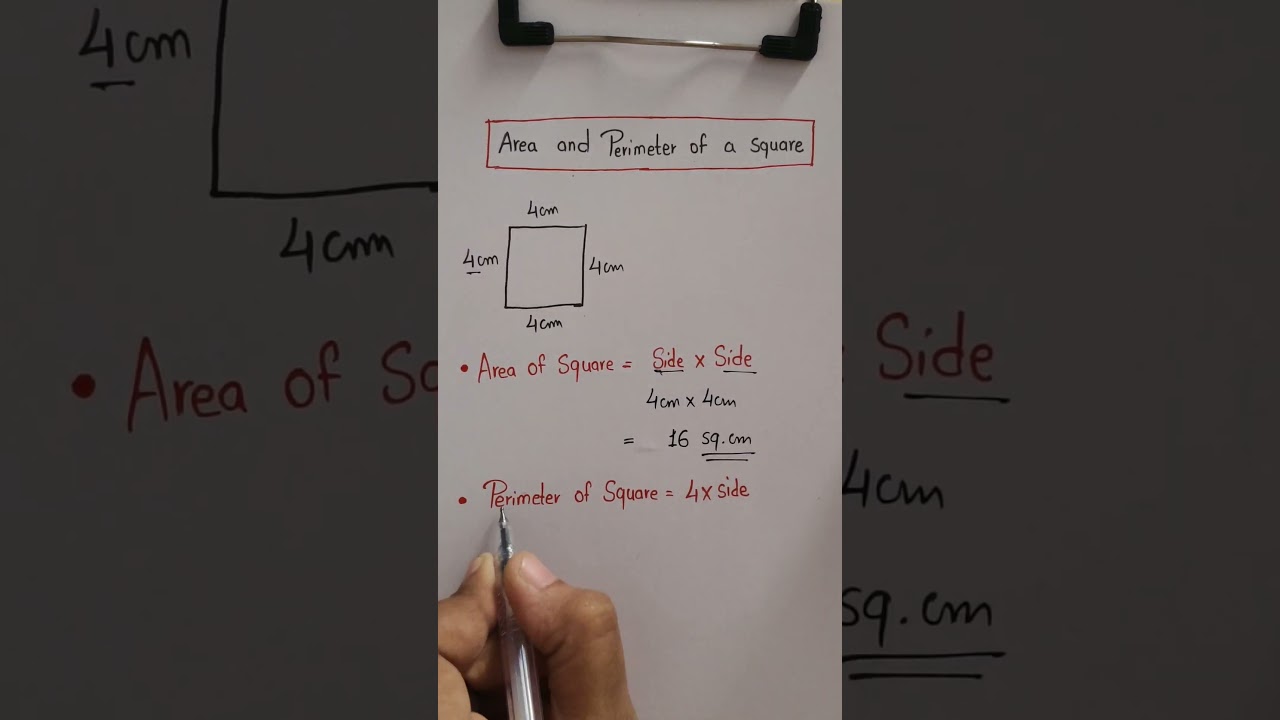 Area and Perimeter of a square
4cm
4cm
4cm
4cm
• Area of Square = Side × Side
4cm × 4cm
= 16 sq.cm
• Perimeter of Square = 4 × side
4cm
4cm
• Area of Sq
Side
4cm
sq.cm